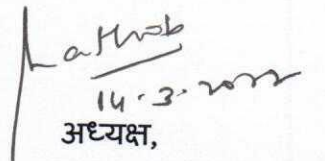 14.3.2022
अध्यक्ष,